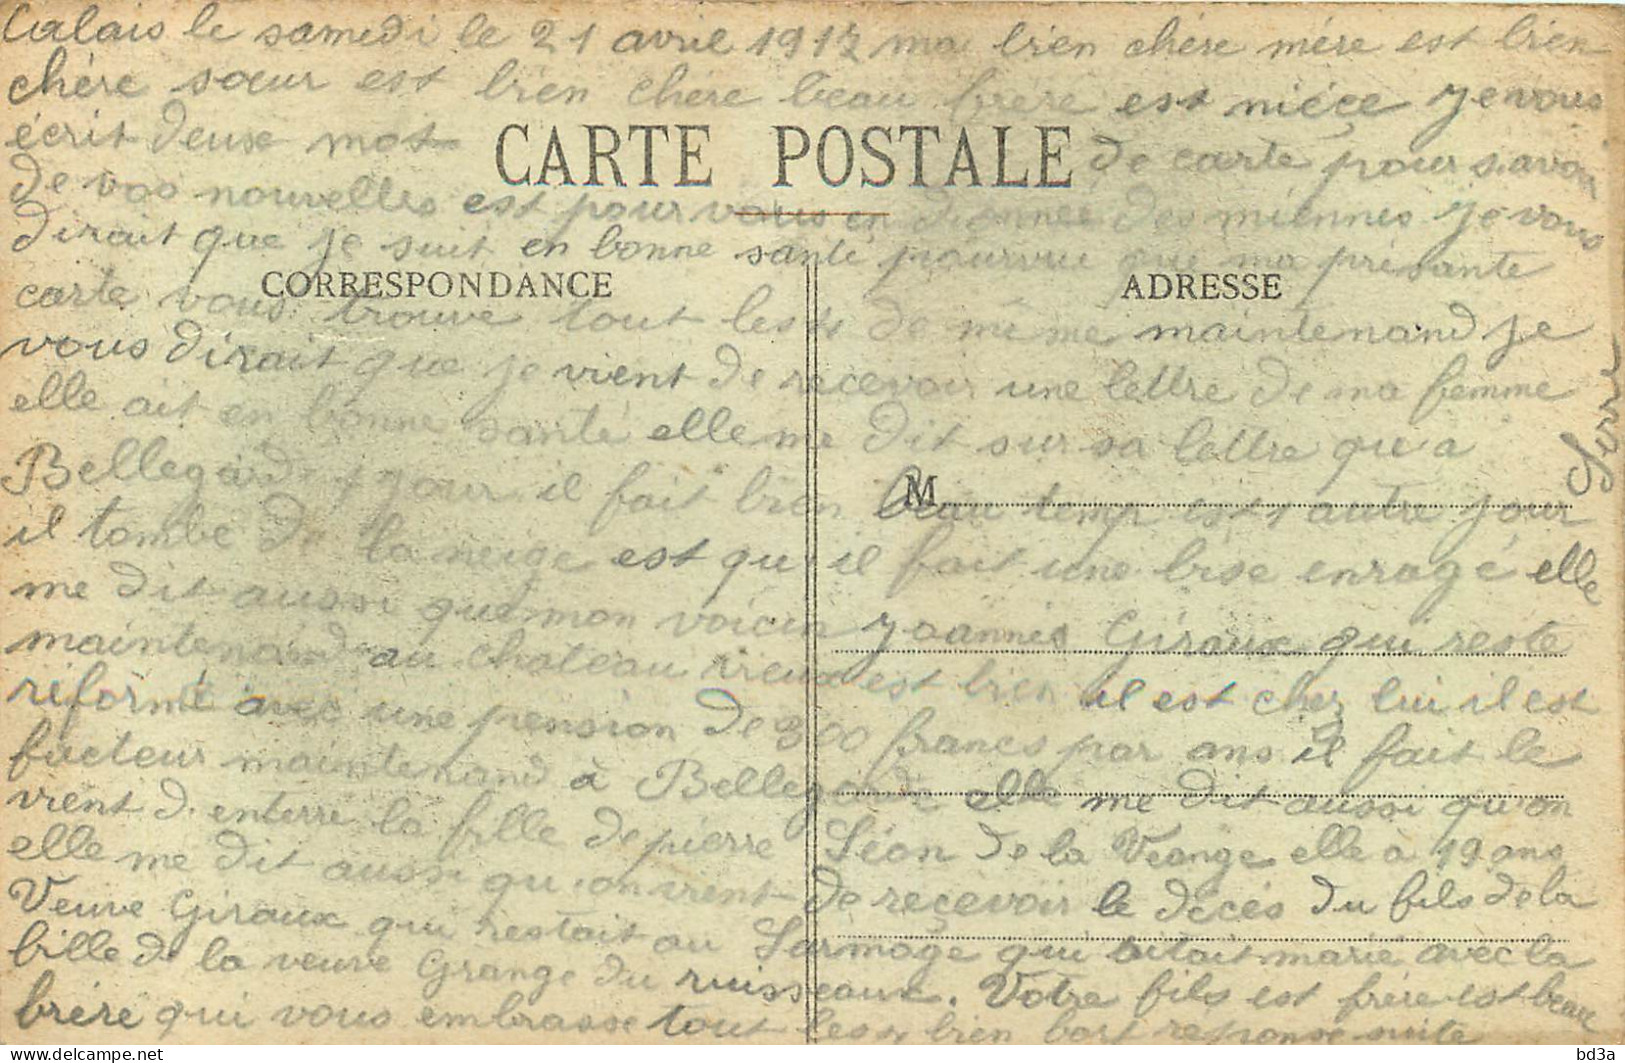 Calais le samedi le 21 avril 1917 ma bien chère mère est bien
chère sœur est bien chère beau frère est nièce Je vous
écrit deux mot de carte pour savoir
CARTE POSTALE
de vos nouvelles est pour vous en dionnée des miennes Je vous
dirait que je suit en bonne santé pourvue que ma présante
CORRESPONDANCE
ADRESSE
carte vous trouve tout les 4 de même maintenand je
vous dirait que je vient de recevoir une lettre de ma femme
elle ait en bonne santé elle me dit sur sa lettre qu a
Bellegarde 1 jour il fait bien beau temp est 1 autre jour
M
il tombe de la neige est qu il fait une bise enragé elle
me dit aussi que mon voicin Joannes Giraux qui reste
maintenand au chateau vieux est bien il est chez lui il est
riformé avec une pension de 300 francs par ans il fait le
facteur maintenand à Bellegarde elle me dit aussi qu'on
vient d. enterre la fille de pierre Léon de la Veange elle a 19 ans
elle me dit aussi qu on vient de reçevoir le décés du fils de la
Veuve Giraux qui restait au Larmage qui aitait marié avec la
fille de la veuve Grange du ruisseaux. Votre fils est frère est beau
frère qui vous embrasse tout les 4 bien fort reponse suite
bd3a